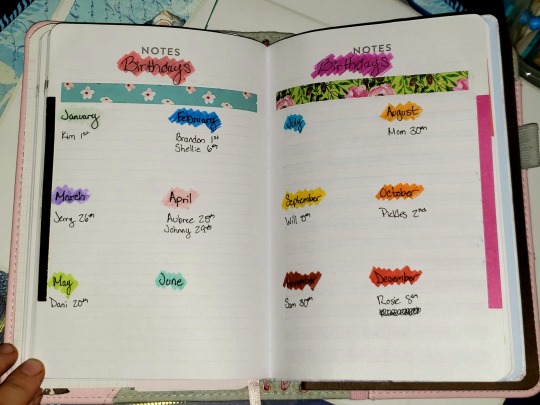 NOTES
Birthdays
January
Kim 1st
February
Brandon 1st
Shellie 6th
March
Jerry 26th
April
Aubree 25th
Johnny 29th
May
Dani 20th
June
NOTES
Birthdays
July
August
Mom 30th
September
Will 5th
October
Pickles 2nd
November
Sam 30th
December
Rosie 8th